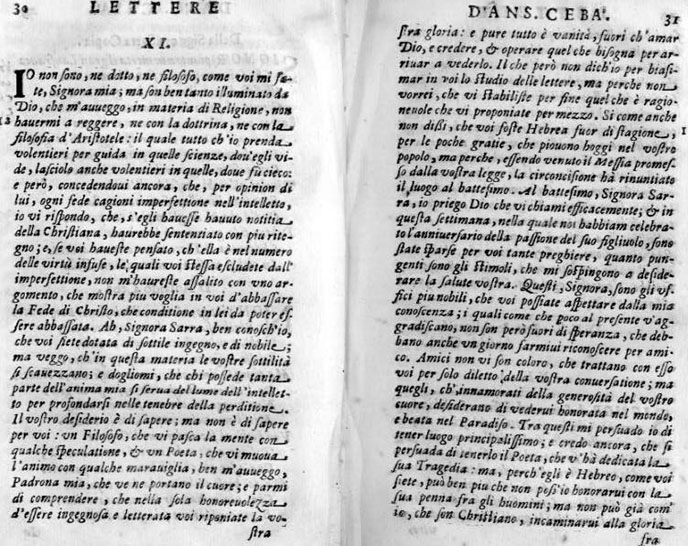 30 LETTERE
XI.
IO non sono, ne dotto, ne filosofo, come voi mi fa-
te, Signora mia; ma son ben tanto illuminato da
Dio, che m'auueggo, in materia di Religione, non
hauermi a reggere, ne con la dottrina, ne con la
12
filosofia d'Aristotele: il quale tutto ch'io prenda
volentieri per guida in quelle scienze, dou'egli vi-
de, lasciolo anche volentieri in quelle, doue fù cieco:
e però, concedendoui ancora, che, per opinion di
lui, ogni fede cagioni imperfettione nell'intelletto,
io vi rispondo, che, s'egli hauesse hauuto notitia
della Christiana, haurebbe sententiato con piu rite-
gno; e, se voi haueste pensato, ch'ella è nel numero
delle virtù infuse, le quali voi stessa escludete dall'
imperfettione, non m'haureste assalito con vno ar-
gomento, che mostra piu voglia in voi d'abbassare
la Fede di Christo, che conditione in lei da poter es-
sere abbassata. Ab, Signora Sarra, ben conosch'io,
che voi siete dotata di sottile ingegno, e di nobile;
ma veggo, ch'in questa materia le vostre sottilità
si scauezzano; e dogliomi, che chi possede tanta
parte dell'anima mia si serua del lume dell'intellet-
to per profondarsi nelle tenebre della perditione.
Il vostro desiderio è di sapere; ma non è di sapere
per voi: vn Filosofo, che vi pasca la mente con
qualche speculatione, & vn Poeta, che vi muoua
l'animo con qualche marauiglia, ben m'auueggo,
Padrona mia, che ve ne portano il cuore; e parmi
di comprendere, che nella sola honoreuolezza
d'essere ingegnosa e letterata voi riponiate la vo-
stra
D'ANS. CEBA'. 31
stra gloria: e pure tutto è vanità, fuori ch'amar
Dio, e credere, & operare quel che bisogna per ar-
riuar a vederlo. Il che però non dich'io per biasi-
mar in voi lo studio delle lettere, ma perche non
vorrei, che vi stabiliste per fine quel che è ragio-
neuole che vi proponiate per mezzo. Si come anche
non dissi, che voi foste Hebrea fuor di stagione,
1
per le poche gratie, che piouono hoggi nel vostro
popolo, ma perche, essendo venuto il Messia promes-
so dalla vostra legge, la circoncisione hà rinuntiato
il luogo al battesimo. Al battesimo, Signora Sar-
ra, io priego Dio che vi chiami efficacemente; & in
questa settimana, nella quale noi habbiam celebra-
to l'anniuersario della passione del suo figliuolo, sono
state sparse per voi tante preghiere, quanto pun-
genti sono gli stimoli, che mi sospingono a deside-
rare la salute vostra. Questi, Signora, sono gli vf-
fici piu nobili, che voi possiate aspettare dalla mia
conoscenza; i quali come che poco al presente v'ag-
gradiscano, non son però fuori di speranza, che deb-
bano anche vn giorno farmiui riconoscere per ami-
co. Amici non vi son coloro, che trattano con esso
voi per solo diletto della vostra conuersatione; ma
quegli, ch'innamorati della generosità del vostro
cuore, desiderano di vederui honorata nel mondo,
e beata nel Paradiso. Tra questi mi persuado io di
tener luogo principalissimo; e credo ancora, che si
persuada di tenerlo il Poeta, che v'hà dedicata la
sua Tragedia: ma, perch'egli è Hebreo, come voi
siete, può ben piu che non poss'io honorarui con la
sua penna fra gli huomini; ma non può già com'
io, che son Christiano, incaminarui alla gloria
fra